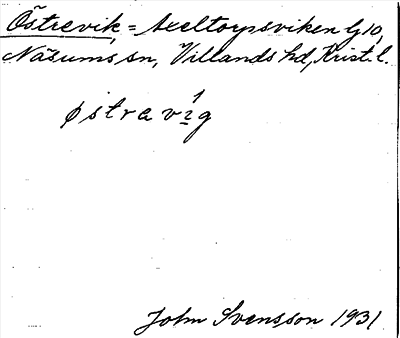 Östrevik, = Axeltorpsviken G 10,
Näsums sn, Villands hd, Krist. l.
østravi̱¹g
John Svensson 1931